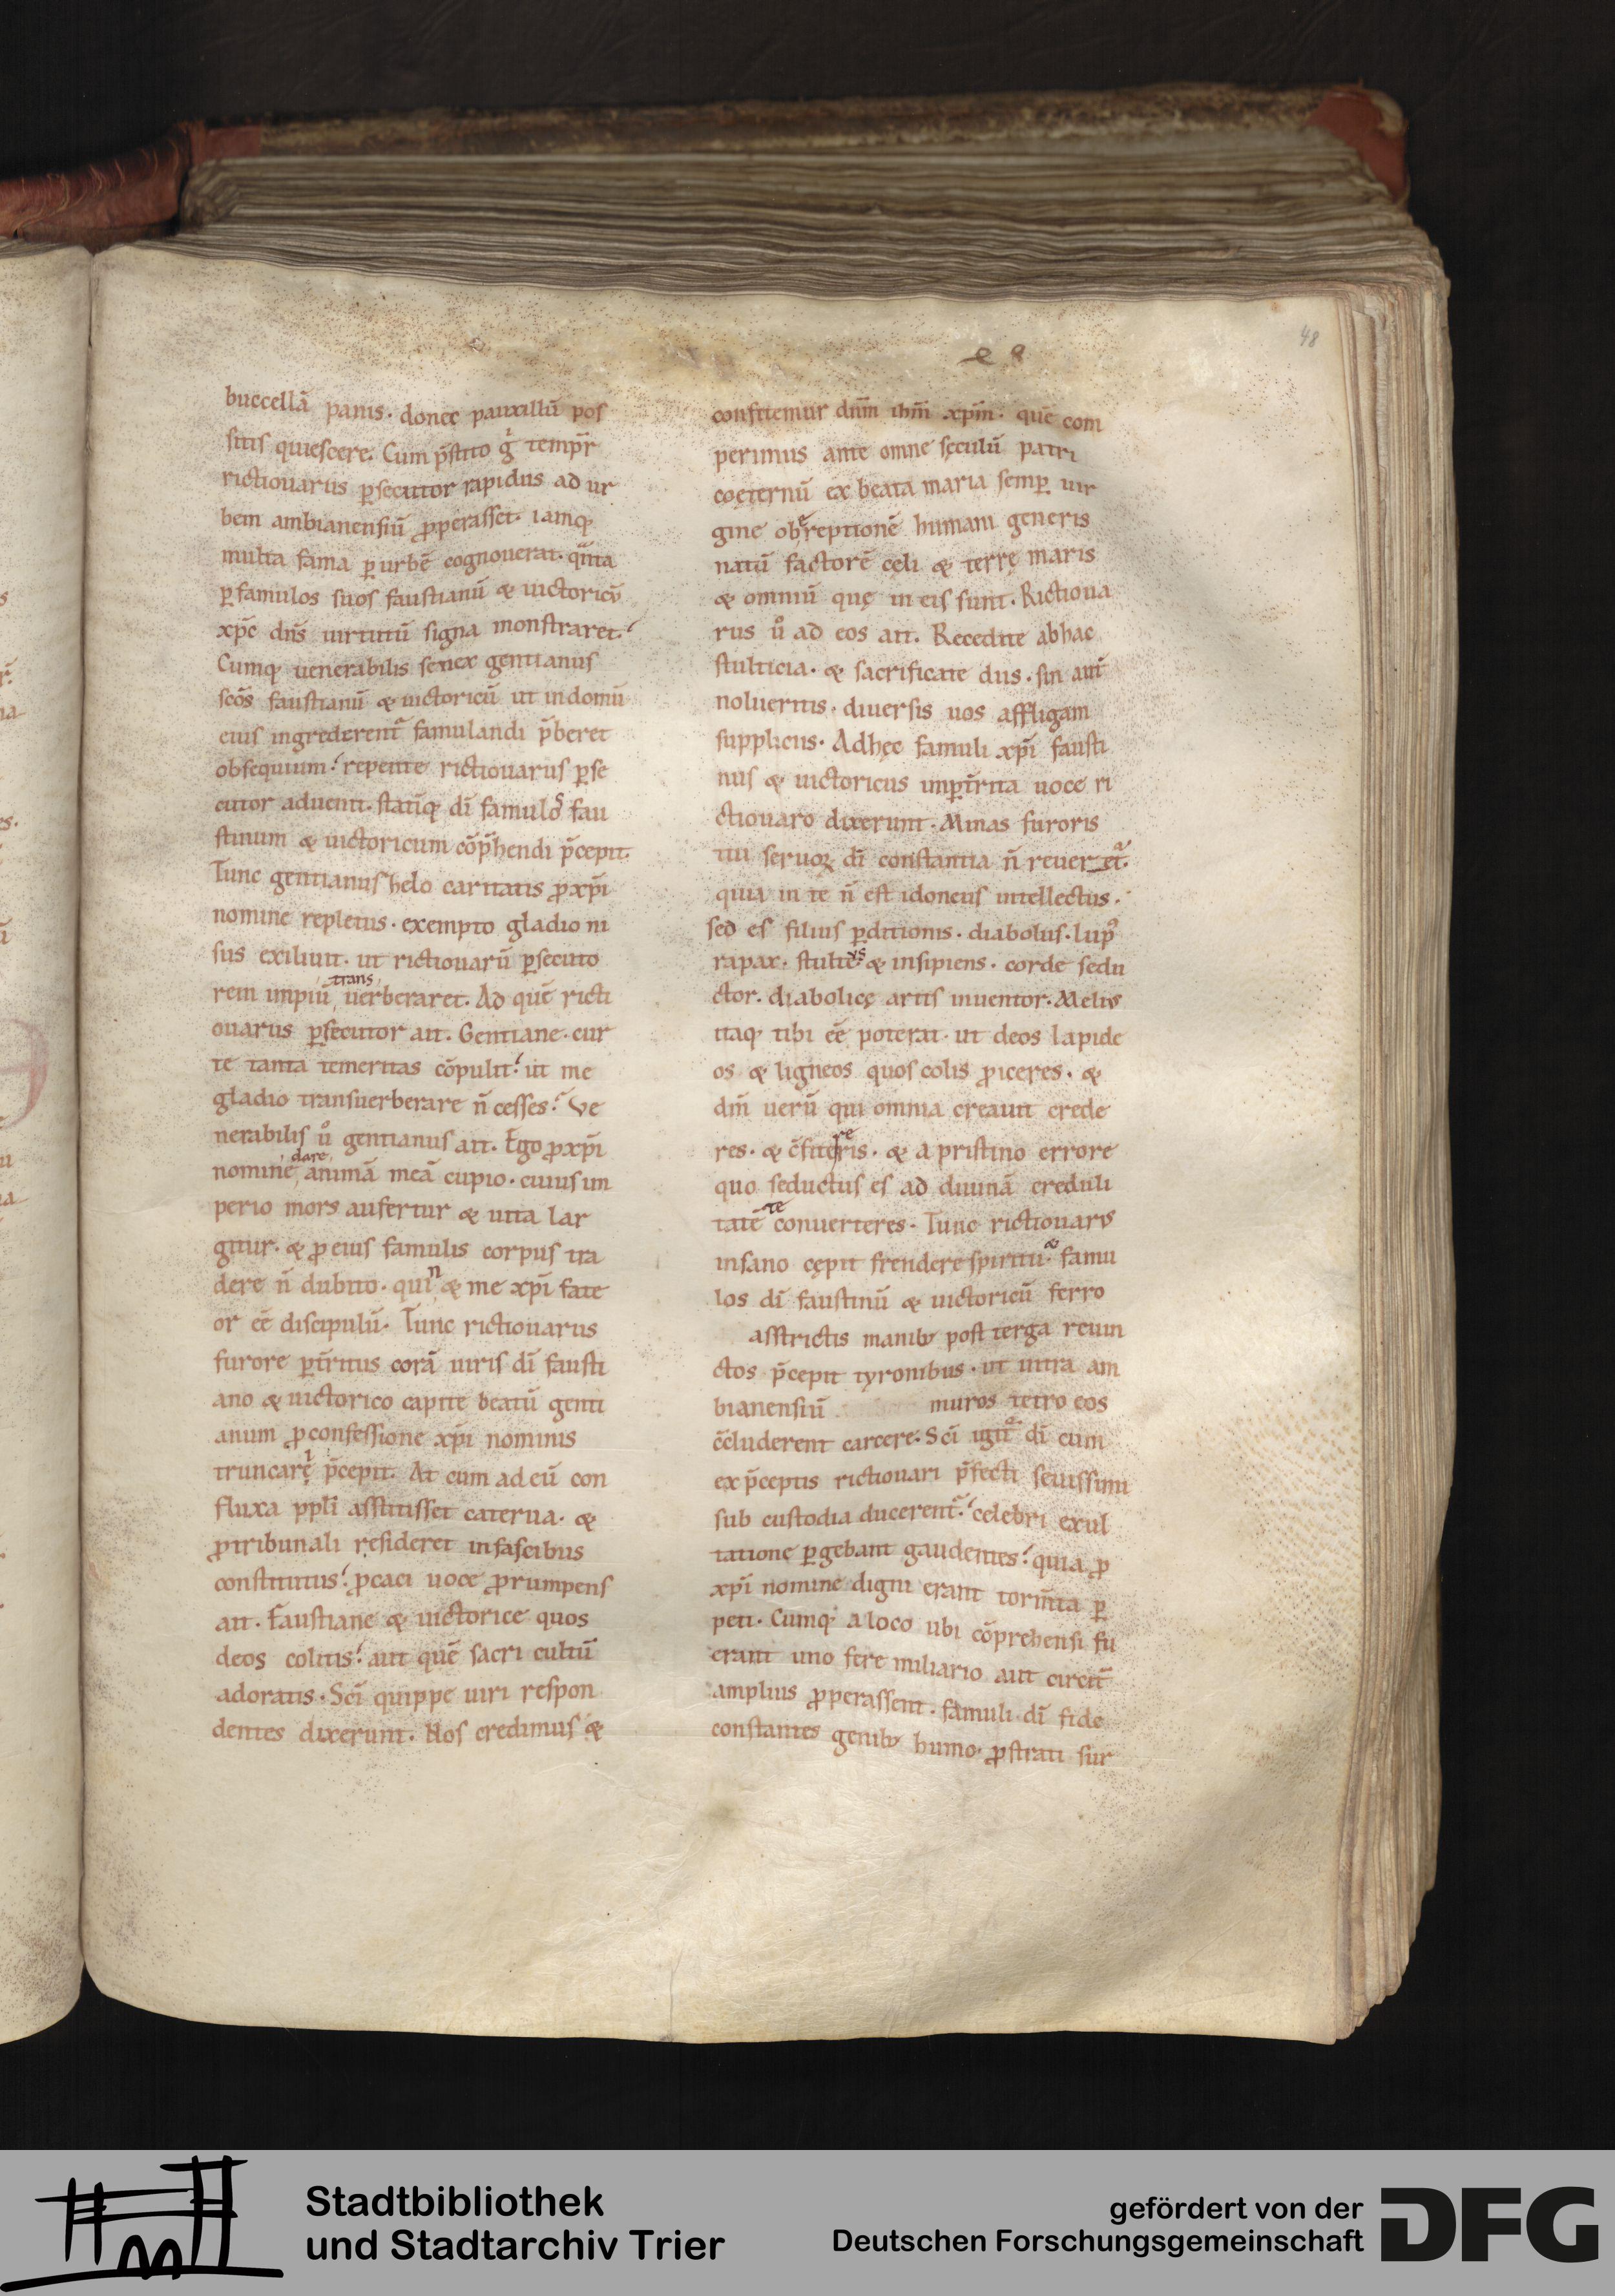 48
buccellā panis. donec pauxillū pos
sitis quiescere. Cum p̄stito g̍ temp̄r
rictiouarus ꝑsecutor rapidus ad ur
bem ambianensiū ꝓperasset. iamq;
multa fama ꝑ urbē cognouerat. q̄nta
ꝑ famulos suos faustianū & uictoricū
xp̄c dn̄s uirtutū signa monstraret.
Cumq; uenerabilis senex gentianus
sc̄os faustianū & uictoricū ut in domū
eius ingrederent̄ famulandi p̄beret
obsequium. repente rictiouarus ꝑse
cutor aduenit. statīq; dī famulos fau
stinum & uictoricum cōp̄hendi p̄cepit.
Tunc gentianus helo caritatis ꝓ xp̄i
nomine repletus. exempto gladio ni
sus exiliuit. ut rictiouarū ꝑsecuto
trans
rem impiū uerberaret. Ad quē ricti
ouarus ꝑsecutor ait. Gentiane. cur
te tanta temeritas cōpulit. ut me
gladio transuerberare n̄ cesses. Ve
nerabilis ů gentianus ait. Ego ꝓ xp̄i
dare
nomine animā meā cupio. cuius im
perio mors aufertur & uita lar
gitur. & ꝓ eius famulis corpus tra
dere n̄ dubito. quin & me xp̄i fate
or ēē discipulū. Tunc rictiouarus
furore ꝑtr̄itus corā uiris dī fausti
ano & uictorico capite beatū genti
anum ꝓ confessione xp̄i nominis
truncarę p̄cepit. At cum ad eū con
fluxa pp̄li asstitisset caterua. &
ꝓ tribunali resideret in fascibus
constitutus. ꝓcaci uoce ꝓrumpens
ait. Faustiane & uictorice quos
deos colitis. aut quē sacri cultū
adoratis. Sc̄i quippe uiri respon
dentes dixerunt. Nos credimus &
confitemur dn̄m ih̄m xp̄m. quē com
perimus ante omne sęculū patri
coęternū ex beata maria semꝑ uir
gine ob reptionē humani generis
natū factorē cęli & terrę maris
& omniū quę in eis sunt. Rictioua
rus ů ad eos ait. Recedite ab hac
stulticia. & sacrificate diis. sin aut̄
nolueritis. diuersis uos affligam
suppliciis. Ad hęc famuli xp̄i fausti
nus & uictoricus imꝑtr̄rita uoce ri
ctiouaro dixerunt. Minas furoris
tui seruoꝝ dī constantia n̄ reueret̄.
quia in te n̄ est idoneus intellectus.
sed es filius ꝑditionis. diabolus. lupꝰ
rapax. stulte & insipiens. corde sedu
ctor. diabolicę artis inuentor. Meliꝰ
itaq; tibi ēē poterat. ut deos lapide
os & ligneos quos colis ꝓiceres. &
dm̄ uerū qui omnia creauit crede
re
res. & c̄fiteris. & a pristino errore
quo seductus es ad diuinā creduli
te
tatē conuerteres. Tunc rictiouarꝰ
insano cępit frendere spiritu. & famu
los dī faustinū & uictoricū ferro
asstrictis manibꝰ post terga reuin
ctos p̄cepit tyronibus. ut intra am
bianensiū muros tetro eos
c̄cluderent carcere. Sc̄i igit̄ dī cum
ex p̄ceptis rictiouari p̄fecti sęuissimi
sub custodia ducerent̄. celebri exul
tatione ꝑgebant gaudentes. quia ꝓ
xp̄i nomine digni erant torm̄ta ꝑ
peti. Cumq; a loco ubi cōprehensi fu
erant uno fere miliario aut circit̄
amplius ꝓperassent. famuli dī fide
constantes genibꝰ humo ꝓstrati sur
Stadtbibliothek
und Stadtarchiv Trier
gefördert von der
Deutschen Forschungsgemeinschaft
DFG